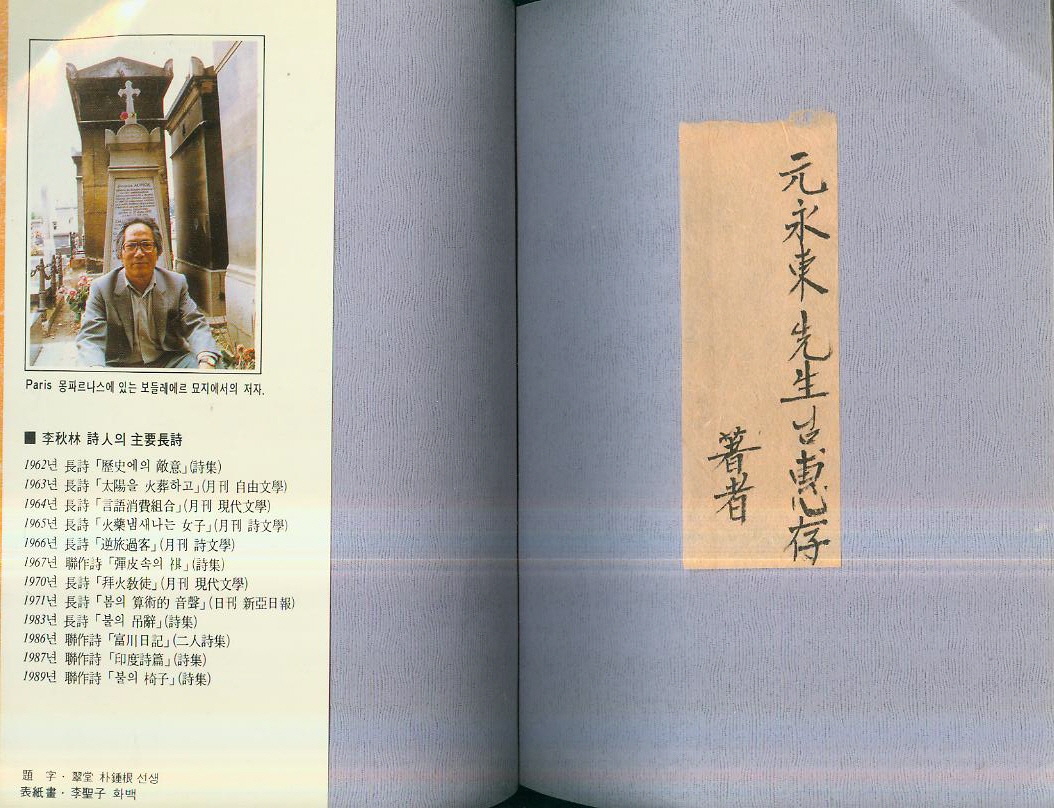 Paris 몽파르나스에 있는 보들레에르 묘지에서의 저자.
■ 李秋林 詩人의 主要長詩
1962년 長詩「歷史에의 敵意」(詩集)
1963년 長詩「太陽을 火葬하고」(月刊 自由文學)
1964년 長詩「言語消費組合」(月刊 現代文學)
1965년 長詩「火藥냄새나는 女子」(月刊 詩文學)
1966년 長詩「逆旅過客」(月刊 詩文學)
1967년 聯作詩「彈皮속의 祺」(詩集)
1970년 長詩「拜火敎徒」(月刊 現代文學)
1971년 長詩「봄의 算術的 音聲」(日刊 新亞日報)
1983년 長詩「불의 吊辭」(詩集)
1986년 聯作詩「富川日記」(二人詩集)
1987년 聯作詩「印度詩篇」(詩集)
1989년 聯作詩「불의 椅子」(詩集)
題 字 · 翠堂 朴鍾根 선생
表紙畫 · 李聖子 화백
元永東先生 惠存
著者